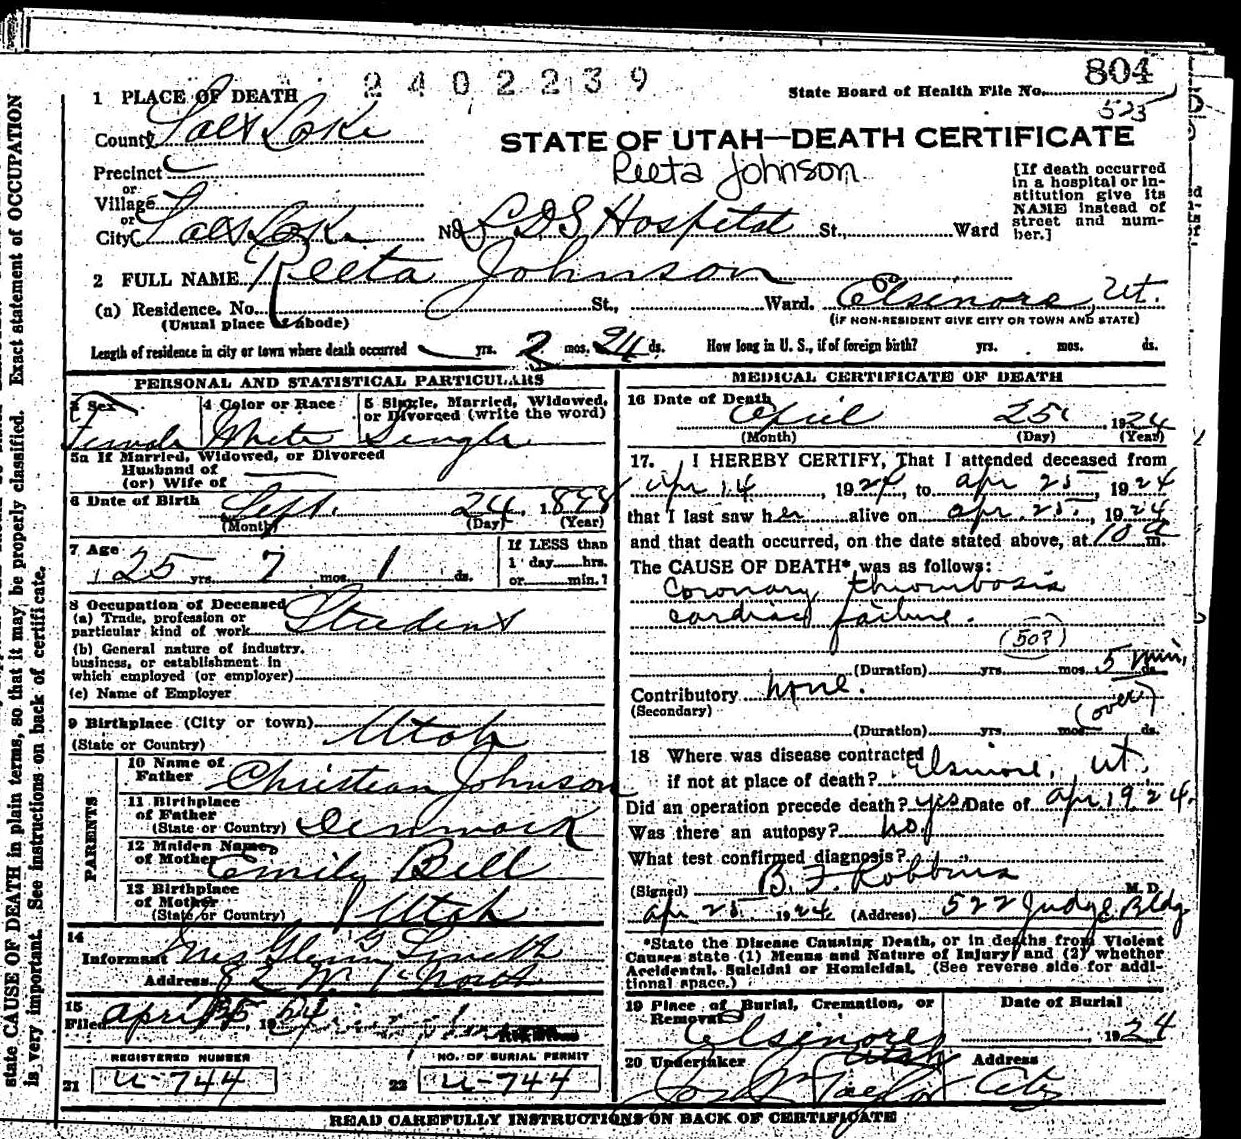 2402239
804
State Board of Health File No.
525
1 PLACE OF DEATH
County Salt Lake
STATE OF UTAH—DEATH CERTIFICATE
Reeta Johnson
Precinct
or
Village
or
City Salt Lake No. L.D.S Hospital St., Ward
[If death occurred
in a hospital or in-
stitution give its
NAME instead of
street and num-
ber.]
2 FULL NAME Reeta Johnson
(a) Residence. No. St., Ward. Elsinore Ut.
(Usual place of abode) (IF NON-RESIDENT GIVE CITY OR TOWN AND STATE)
Length of residence in city or town where death occurred yrs. 2 mos. 24 ds. How long in U. S., if of foreign birth? yrs. mos. ds.
PERSONAL AND STATISTICAL PARTICULARS
3 Sex 4 Color or Race 5 Single, Married, Widowed,
or Divorced (write the word)
Female White Single
5a If Married, Widowed, or Divorced
Husband of
(or) Wife of
6 Date of Birth Sept. 24, 1898
(Month) (Day) (Year)
7 Age 25 yrs. 7 mos. 1 ds.
If LESS than
1 day hrs.
or min.?
8 Occupation of Deceased
(a) Trade, profession or
particular kind of work Student
(b) General nature of industry,
business, or establishment in
which employed (or employer)
(c) Name of Employer
9 Birthplace (City or town)
(State or Country) Utah
PARENTS
10 Name of
Father Christian Johnson
11 Birthplace
of Father
(State or Country) Denmark
12 Maiden Name
of Mother Emily Bell
13 Birthplace
of Mother
(State or Country) Utah
14
Informant Mrs Glenn G Smith
Address 82 W. 1 North
15
Filed April 25 1924
REGISTERED NUMBER NO. OF BURIAL PERMIT
21 U-744 22 U-744
MEDICAL CERTIFICATE OF DEATH
16 Date of Death
April 25, 1924
(Month) (Day) (Year)
17. I HEREBY CERTIFY, That I attended deceased from
Apr 14, 1924, to apr 25, 1924
that I last saw her alive on apr. 25, 1924
and that death occurred, on the date stated above, at 10 a m.
The CAUSE OF DEATH* was as follows:
Coronary thrombosis
cardiac failure.
(50?)
(Duration) yrs. mos. 5 min.
Contributory none.
(Secondary) (over)
(Duration) yrs. mos. ds.
18 Where was disease contracted
if not at place of death? Elsinore, Ut.
Did an operation precede death? yes Date of apr. 1924.
Was there an autopsy? no
What test confirmed diagnosis?
(Signed) B. F. Robbins M. D.
apr 25 1924 (Address) 522 Judge Bldg
*State the Disease Causing Death, or in deaths from Violent
Causes state (1) Means and Nature of Injury; and (2) whether
Accidental, Suicidal or Homicidal. (See reverse side for addi-
tional space.)
19 Place of Burial, Cremation, or
Removal Date of Burial
Elsinore, Utah 1924
20 Undertaker Address
Taylor City
READ CAREFULLY INSTRUCTIONS ON BACK OF CERTIFICATE
state CAUSE OF DEATH in plain terms, so that it may be properly classified. Exact statement of OCCUPATION
is very important. See instructions on back of certificate.